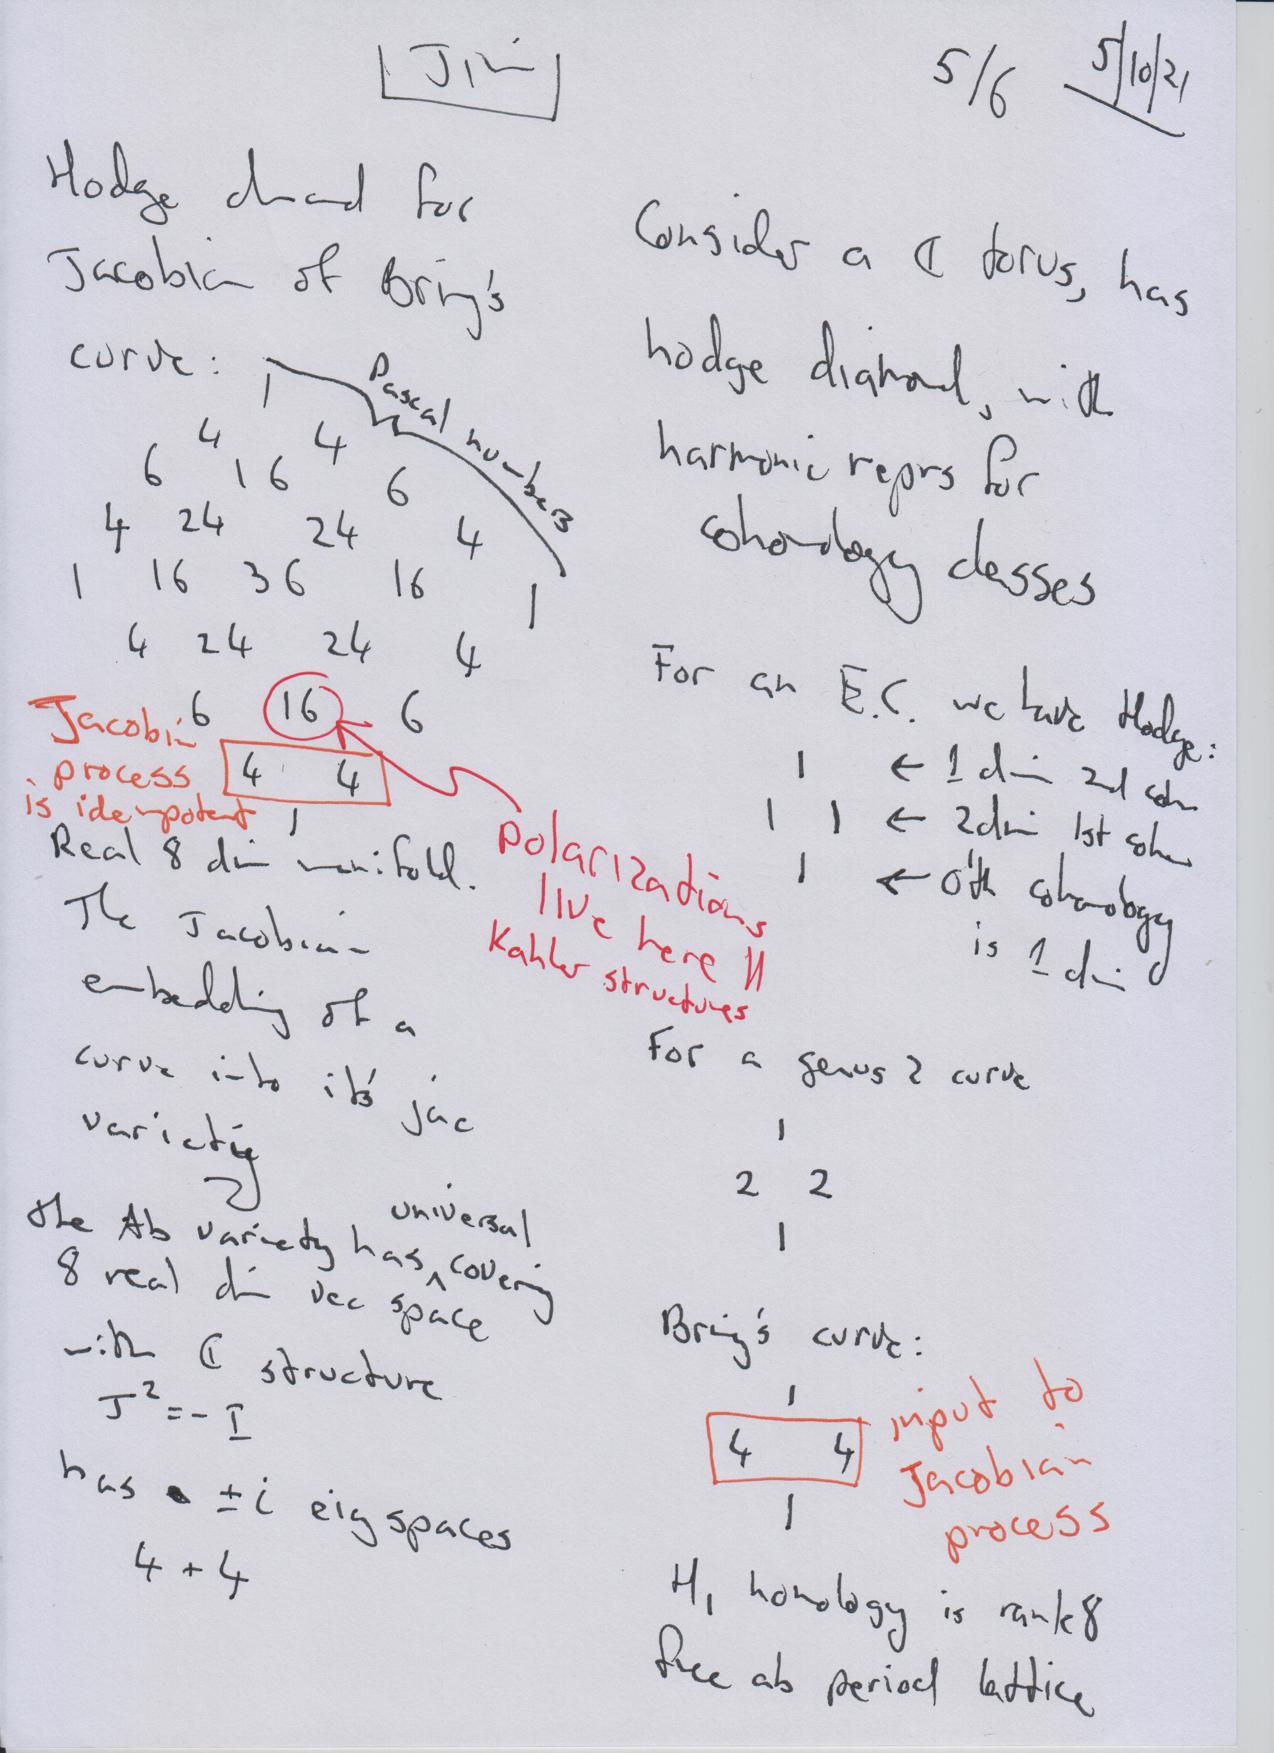 JIM
5/6
5/10/21
Hodge diamond for
Jacobian of Bring's
curve:
Pascal numbers
1
4 4
6 16 6
4 24 24 4
1 16 36 16 1
4 24 24 4
6 16 6
4 4
1
Jacobian
process
is idempotent
Real 8 dim manifold.
The Jacobian
embedding of a
curve into it's jac
variety
the Ab variety has universal covering
8 real dim vec space
with ℂ structure
J² = - I
has ±i eigspaces
4 + 4
polarizations
live here !!
Kahler structures
Consider a ℂ torus, has
hodge diamond, with
harmonic reprs for
cohomology classes
For an E.C. we have Hodge:
1 ← 1 dim 2nd coho
1 1 ← 2 dim 1st coho
1 ← 0'th cohomology
is 1 dim
For a genus 2 curve
1
2 2
1
Bring's curve:
1
4 4
1
input to
Jacobian
process
H₁ homology is rank 8
free ab period lattice